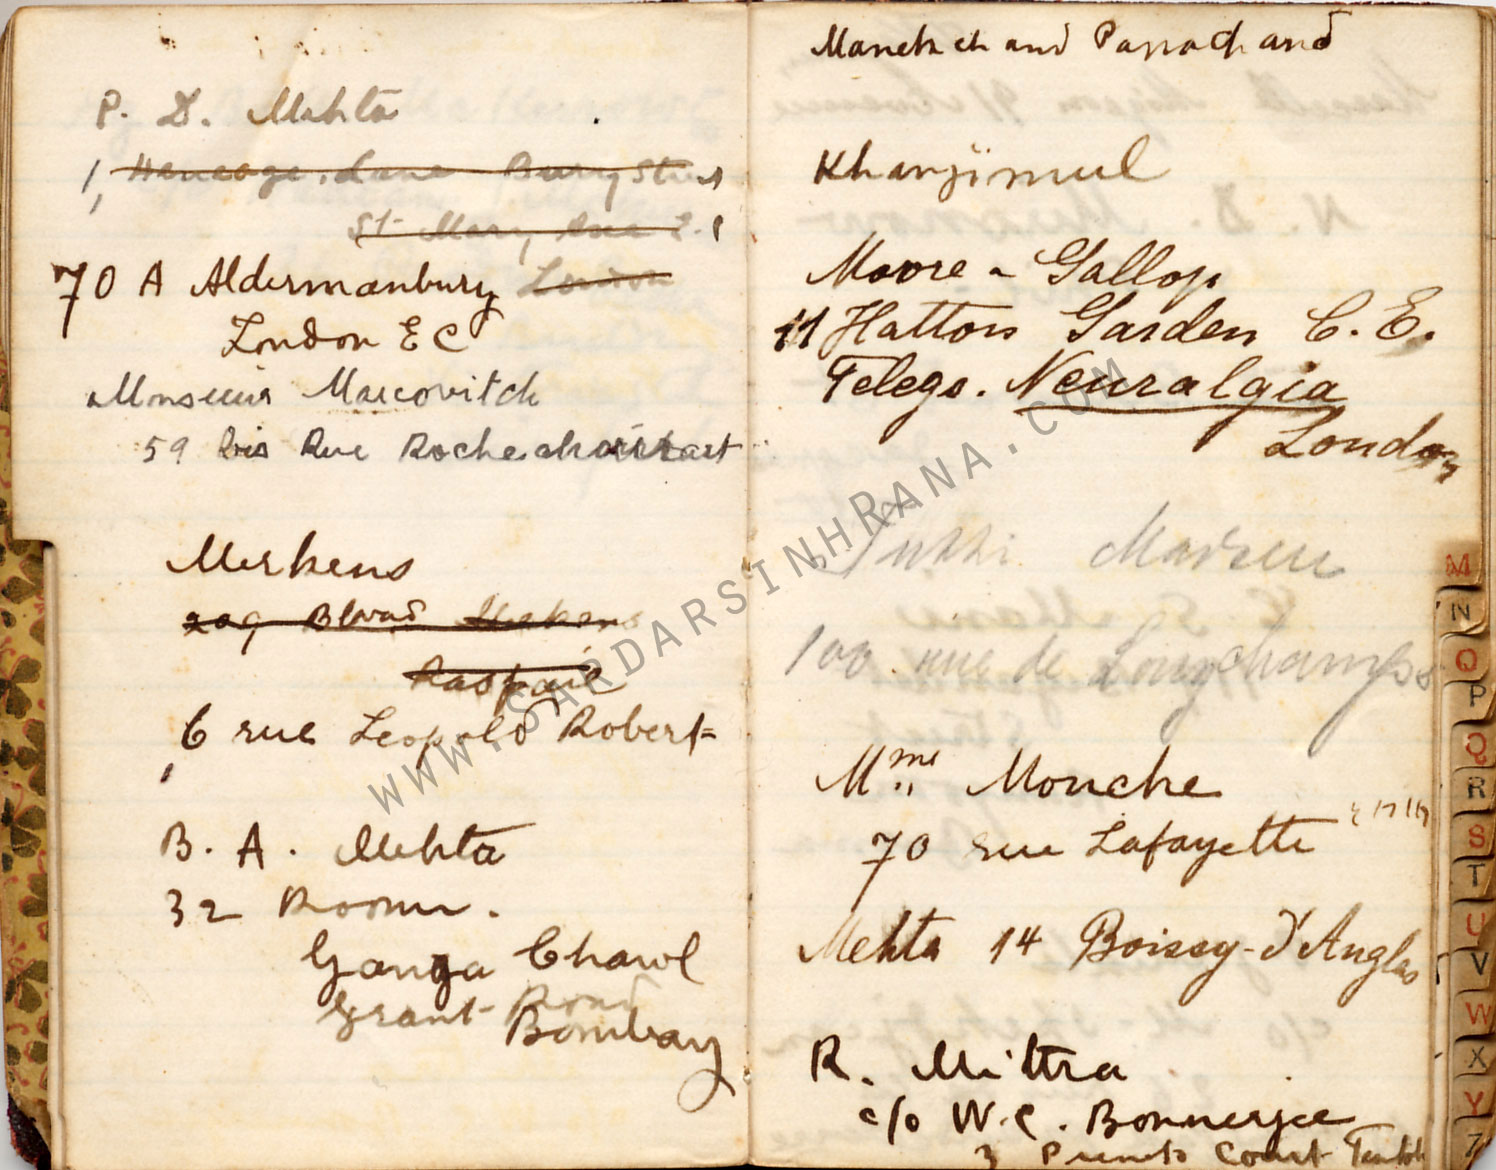 P. D. Mehta
1, Heneage Lane Bury Street
St Mary Axe E.C
70 A Aldermanbury London
London E C
Monsieur Marcovitch
59 bis Rue Rochechouart
Merkens
209 Blvad
Raspail
6 rue Leopold Robert
B. A. Mehta
32 Room.
Ganga Chawl
Grant Road
Bombay
Manekchand Panachand
Khanjimul
Moore - Gallop
11 Hatton Garden C. E.
Telegs. Neuralgia
London
100 rue de Longchamps
Mme Monche
70 rue Lafayette
Mehta 14 Boissy-d'Anglas
R. Mittra
c/o W. C. Bonnerjee
3 Court
M
N
O
P
Q
R
S
T
U
V
W
X
Y
Z
WWW.SARDARSINHRANA.COM